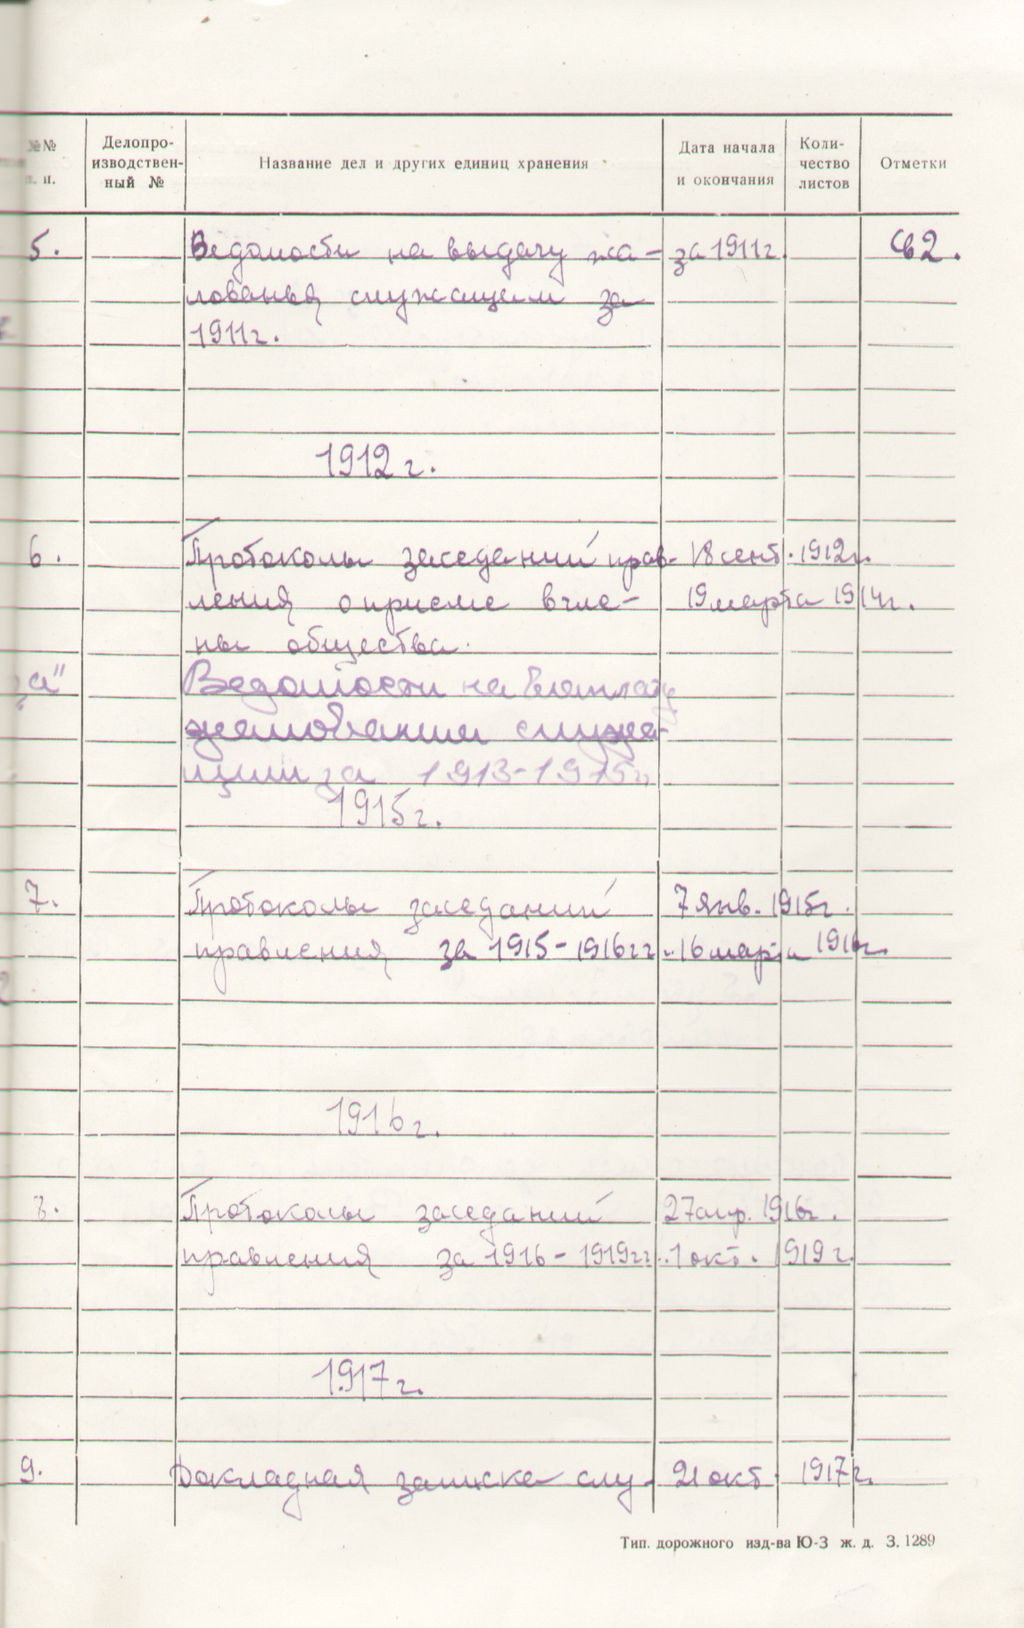 №№ п. п.
Делопро-
изводствен-
ный №
Название дел и других единиц хранения
Дата начала
и окончания
Коли-
чество
листов
Отметки
5. Ведомости на выдачу жа- за 1911г. св2.
лованья служащим за
1911г.
1912 г.
6. Протоколы заседаний прав- 18 сент. 1912г.
ления о приеме в чле- 19 марта 1914г.
ны общества.
"а" Ведомости на выплату
жалования служа-
щим за 1913-1915гг
1915г.
7. Протоколы заседаний 7 янв. 1915г.
правления за 1915-1916гг. 16 марта 1916г.
1916г.
8. Протоколы заседаний 27 апр. 1916г.
правления за 1916-1919гг. 1 окт. 1919 г.
1917 г.
9. Докладная записка слу- 21 окт 1917 г.
Тип. дорожного изд-ва Ю-З ж. д. З. 1289